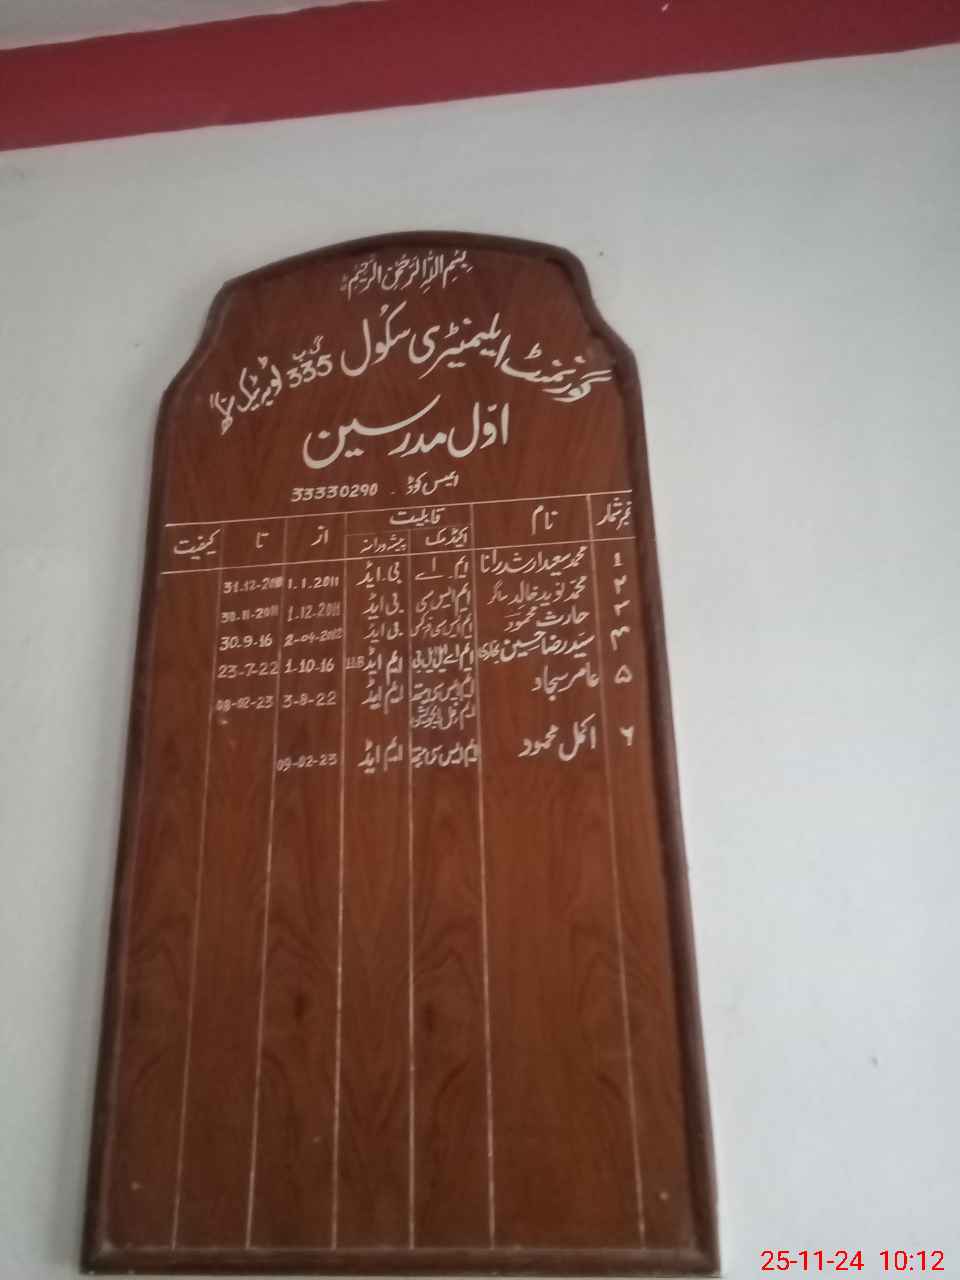 بِسْمِ اللهِ الرَّحْمٰنِ الرَّحِيْمِ
گورنمنٹ ایلیمنٹری سکول 335 گ ب ٹوبہ ٹیک سنگھ
اوّل مدرسین
ایمس کوڈ - 33330290
نمبر شمار نام قابلیت از تا کیفیت
اکیڈمک پیشہ ورانہ
1 محمد سعید ارشد رانا ایم۔اے بی۔ایڈ 1.1.2011
۲ محمد نوید خالد ساگر ایم ایس سی بی۔ایڈ 1.12.2011 30.11.2011
۳ حارث محمود ایم ایس سی فزکس بی۔ایڈ 2-04-2012 30.9.16
۴ سیّد رضا حسین بخاری ایم اے ایل ایل بی ایم ایڈ 1-10-16 23-7-22
۵ عامر سجاد ایم ایس سی میتھ ایم ایڈ 3-8-22 08-02-23
ایم فل ایجوکیشن
۶ اکمل محمود ایم ایس سی میتھ ایم ایڈ 09-02-23
25-11-24 10:12